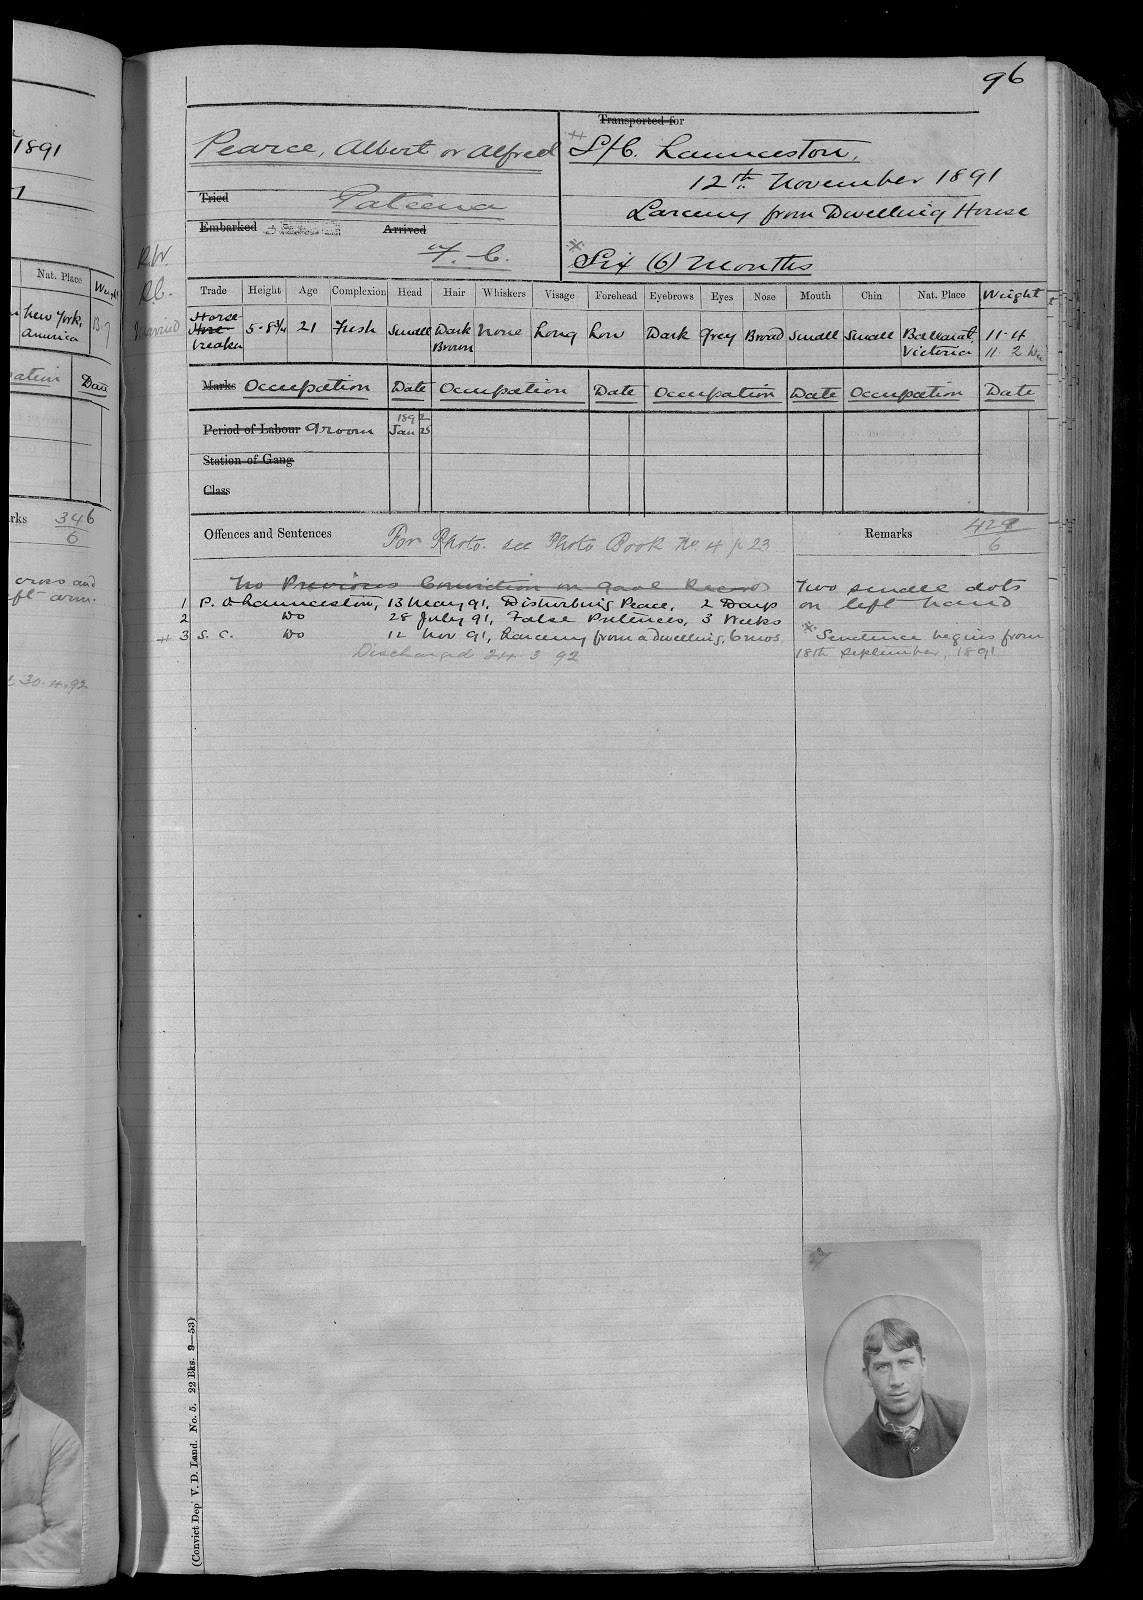 1891
Nat. Place
New York,
America
13.7
Date
346
6
cross and
left arm.
30.4.92
96
Pearce, Albert or Alfred
Transported for
S/C. Launceston,
12th November 1891
Larceny from Dwelling House
Tried
Pateena
Embarked
Arrived
F. C.
Six (6) Months
R/W
R.C.
Married
Trade Height Age Complexion Head Hair Whiskers Visage Forehead Eyebrows Eyes Nose Mouth Chin Nat. Place Weight
Horse
breaker
5-8¾ 21 Fresh Small Dark Brown None Long Low Dark Grey Broad Small Small Ballarat, Victoria 11-4
11.2
Marks Occupation Date Occupation Date Occupation Date Occupation Date
Period of Labour Groom 1892 Jan 25
Station of Gang
Class
Offences and Sentences For Photo. see Photo Book No 4 p 23 Remarks
6
No Previous Conviction on Gaol Records
1 P. O Launceston, 13 May 91, Disturbing Peace, 2 Days
2 Do 28 July 91, False Pretences, 3 Weeks
+ 3 S. C. Do 12 Nov 91, Larceny from a dwelling, 6 mos.
Discharged 24.3.92
Two small dots
on left hand
Sentence begins from
18th September, 1891
(Convict Dep V. D. Land. No. 5. 22 Bks. 9—53)